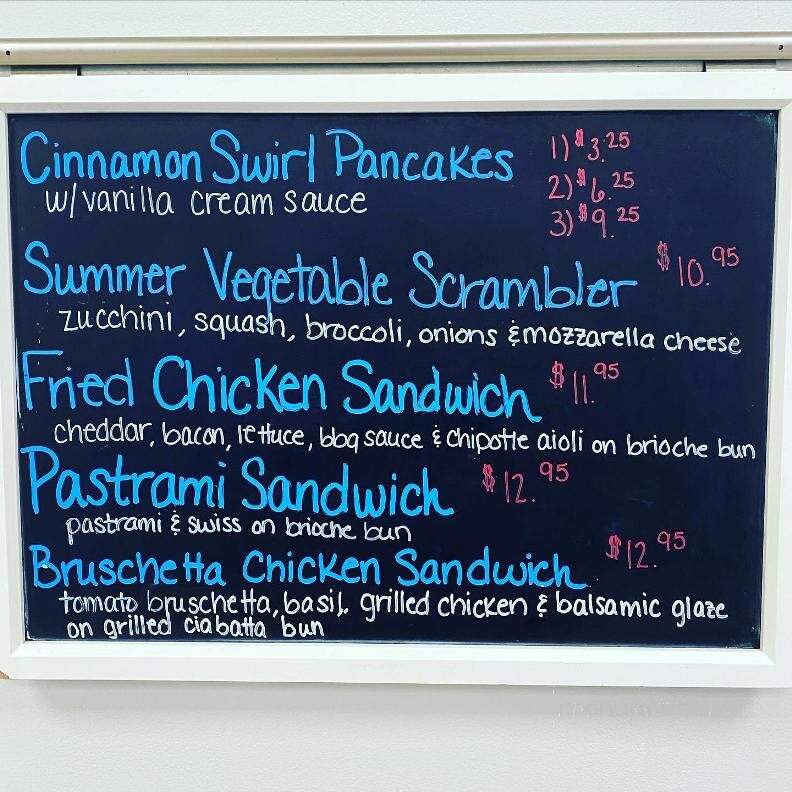 Cinnamon Swirl Pancakes 1) $3.25
w/vanilla cream sauce 2) $6.25
3) $9.25
Summer Vegetable Scrambler $10.95
zucchini, squash, broccoli, onions & mozzarella cheese
Fried Chicken Sandwich $11.95
cheddar, bacon, lettuce, bbq sauce & chipotle aioli on brioche bun
Pastrami Sandwich $12.95
pastrami & swiss on brioche bun
Bruschetta Chicken Sandwich $12.95
tomato bruschetta, basil, grilled chicken & balsamic glaze
on grilled ciabatta bun